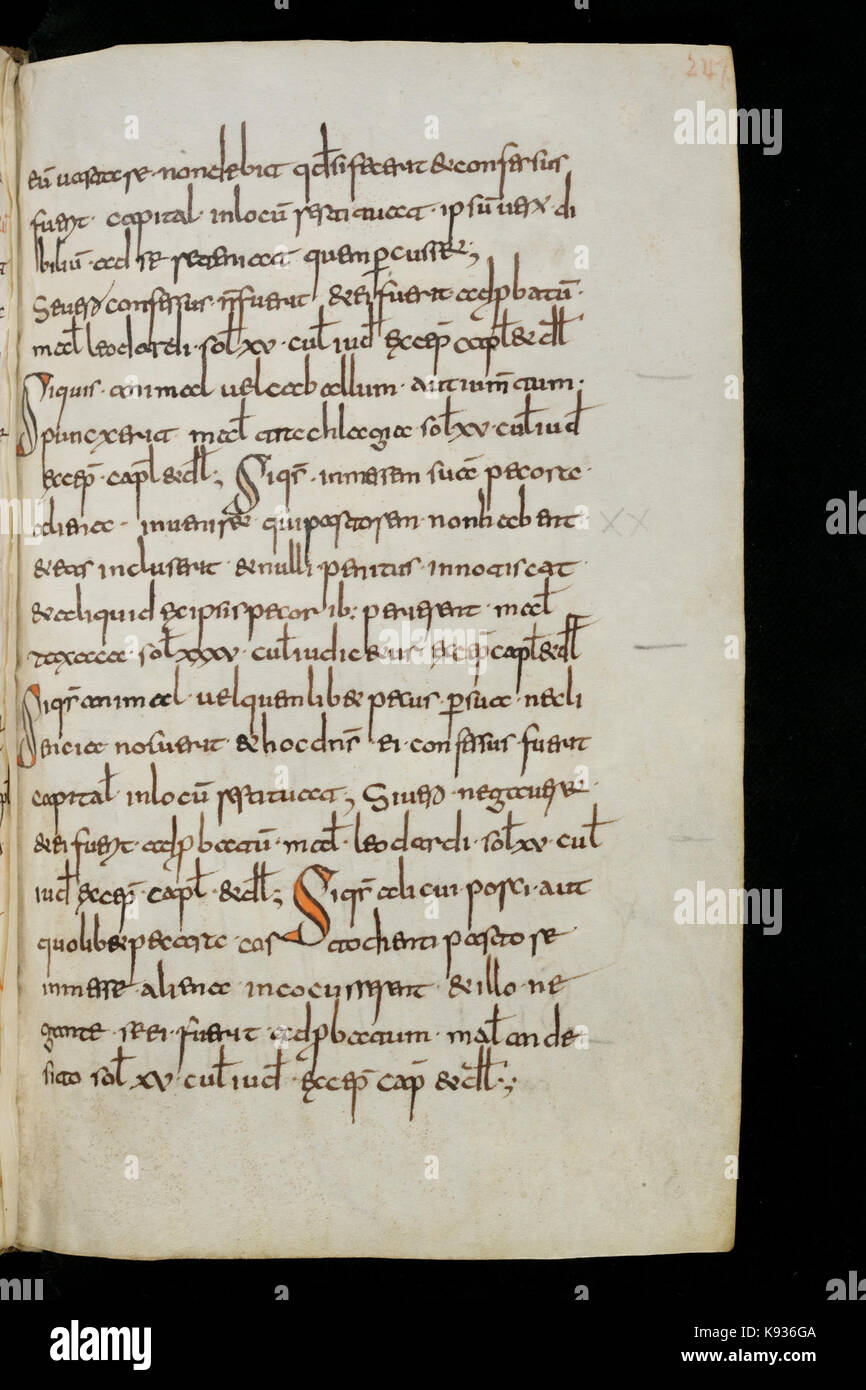 247
eū uastare · non debit qd̄ si fecerit & confessus
fuer̄t · capital · in locū restituat · ipsū uero di
biliū · ad se recipiat quem p̄cusser̄;
Si uero confessus n̄ fuerit & ei fuerit adp̄batū ·
mal̄ leodardi · sol̄ xv · cul̄ iud̄ excep̄ capl̄ & dl̄
Siquis · animal uel caballum · aut iumētum ·
punxerit mal̄ stachlagia sol̄ xv · cul̄ iud̄
excep̄ · capl̄ & dl̄; Siqs̄ · in messem sua pecora
aliena · inuenire qui pastorem · non habent
& eas incluserit & nulli penitus · innotiscat
& aliquid ex ipsis pecorib: perierent mal̄
taxaca sol̄ xxxv · cul̄ iudicetur excep̄ capl̄ & dl̄
Siqs̄ animal · uel quemlib& pecus p̄ sua necli
gencia nosuerit & hoc dn̄s ei confessus fuerit
capital̄ in locū restituat; Si uero negauer̄
& ei fuer̄t · adp̄batū · mal̄ · leodardi · sol̄ xv cul̄
iud̄ excep̄ · capl̄ · & dl̄; Siqs̄ alicui porci · aut
quolib& pecora cas todienti pastore
in messe · aliena incocurrerent & illo ne
gante se ei · fuerit adp̄batum · mal̄ ande
sito sol̄ xv · cul̄ iud̄ excep̄ cap̄ & dl̄ ·;
alamy
Image ID: K936GA
www.alamy.com